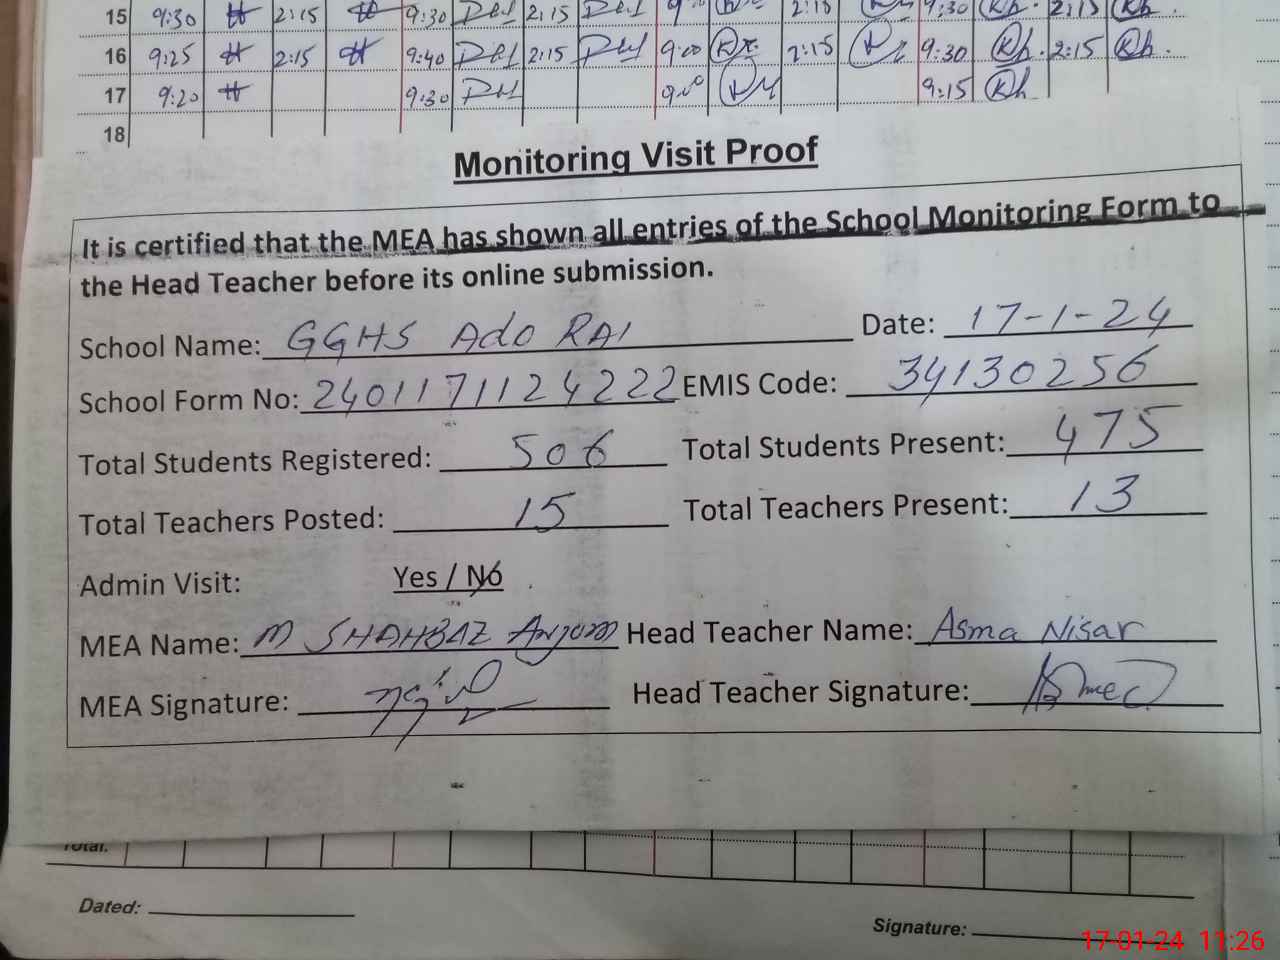 15 9:30 2:15 9:30 2:15 2:15 9:30 2:15
16 9:25 2:15 9:40 2:15 9:00 2:15 9:30 2:15
17 9:20 9:30 9:00 9:15
18
Monitoring Visit Proof
It is certified that the MEA has shown all entries of the School Monitoring Form to
the Head Teacher before its online submission.
School Name: GGHS Ado RAI Date: 17-1-24
School Form No: 2401171124222 EMIS Code: 34130256
Total Students Registered: 506 Total Students Present: 475
Total Teachers Posted: 15 Total Teachers Present: 13
Admin Visit: Yes / No
MEA Name: M SHAHBAZ Anjum Head Teacher Name: Asma Nisar
MEA Signature: Head Teacher Signature:
Total:
Dated:
Signature:
17-01-24 11:26